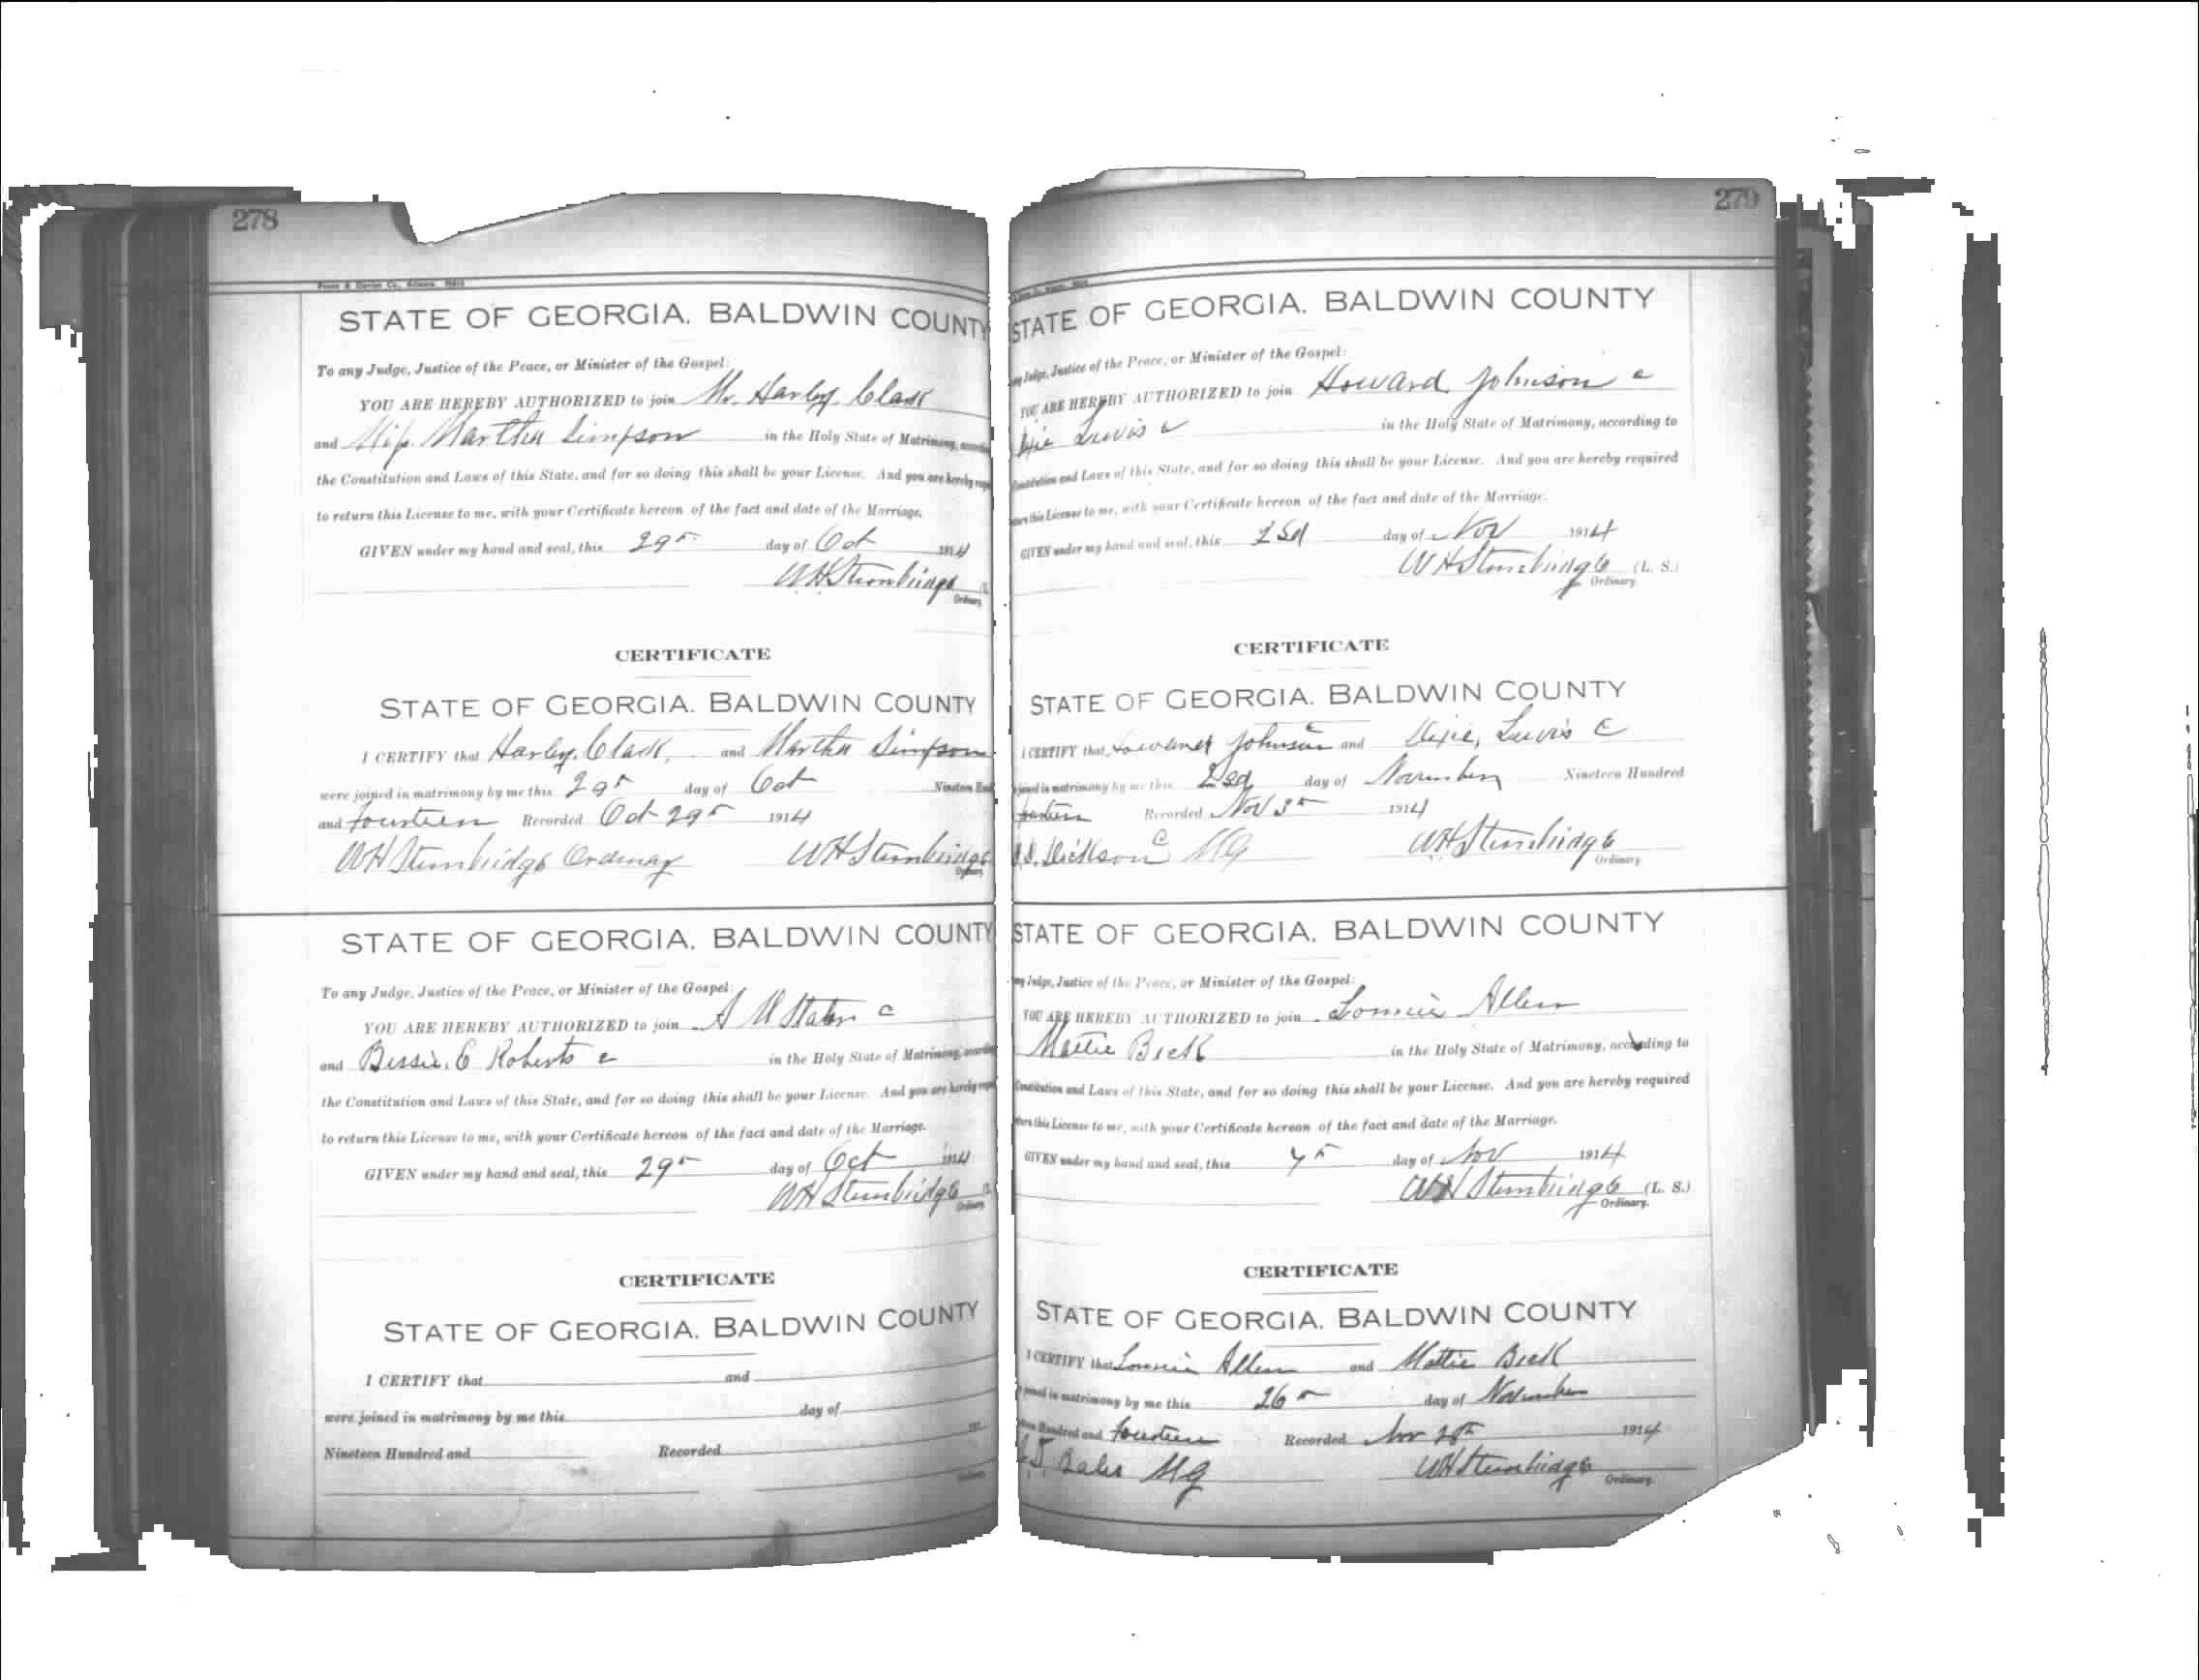 278
STATE OF GEORGIA, BALDWIN COUNTY
To any Judge, Justice of the Peace, or Minister of the Gospel:
YOU ARE HEREBY AUTHORIZED to join Mr. Harley Clark
and Miss Martha Simpson in the Holy State of Matrimony,
the Constitution and Laws of this State, and for so doing this shall be your License. And you are hereby
to return this License to me, with your Certificate hereon of the fact and date of the Marriage.
GIVEN under my hand and seal, this 29th day of Oct 1914
WHStembridge
Ordinary
CERTIFICATE
STATE OF GEORGIA. BALDWIN COUNTY
I CERTIFY that Harley Clark, and Martha Simpson
were joined in matrimony by me this 29th day of Oct Nineteen
and Fourteen Recorded Oct 29th 1914
WHStembridge Ordinary WHStembridge
STATE OF GEORGIA. BALDWIN COUNTY
To any Judge, Justice of the Peace, or Minister of the Gospel:
YOU ARE HEREBY AUTHORIZED to join A c
and Bessie. C Roberts c in the Holy State of Matrimony,
the Constitution and Laws of this State, and for so doing this shall be your License. And you are hereby
to return this License to me, with your Certificate hereon of the fact and date of the Marriage.
GIVEN under my hand and seal, this 29th day of Oct 1914
WHStembridge
CERTIFICATE
STATE OF GEORGIA. BALDWIN COUNTY
I CERTIFY that and
were joined in matrimony by me this day of
Nineteen Hundred and Recorded
279
STATE OF GEORGIA. BALDWIN COUNTY
Judge, Justice of the Peace, or Minister of the Gospel:
YOU ARE HEREBY AUTHORIZED to join Howard Johnson c
Lewis c in the Holy State of Matrimony, according to
and Laws of this State, and for so doing this shall be your License. And you are hereby required
this License to me, with your Certificate hereon of the fact and date of the Marriage.
GIVEN under my hand and seal, this 2nd day of Nov 1914
WHStembridge (L. S.)
Ordinary
CERTIFICATE
STATE OF GEORGIA. BALDWIN COUNTY
I CERTIFY that Howard Johnson c and Dixie, Lewis C
in matrimony by me this 2nd day of November Nineteen Hundred
Recorded Nov 3rd 1914
Dickson c MG WHStembridge
Ordinary
STATE OF GEORGIA. BALDWIN COUNTY
Judge, Justice of the Peace, or Minister of the Gospel:
YOU ARE HEREBY AUTHORIZED to join Lonnie Allen
Mattie Beck in the Holy State of Matrimony, according to
and Laws of this State, and for so doing this shall be your License. And you are hereby required
this License to me, with your Certificate hereon of the fact and date of the Marriage.
GIVEN under my hand and seal, this day of Nov 1914
WHStembridge (L. S.)
Ordinary.
CERTIFICATE
STATE OF GEORGIA. BALDWIN COUNTY
I CERTIFY that Lonnie Allen and Mattie Beck
in matrimony by me this 26th day of November
Hundred and Fourteen Recorded Nov 28th 1914
MG WHStembridge
Ordinary.